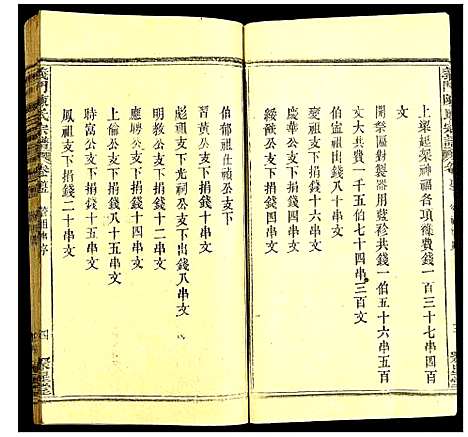 上梁起架神福各項條費錢一百三十七串四百
文
開祭區對製器用藍衫共錢一伯五十六串五百
文大共一千五伯七十四串三百文
伯宣祖出錢八串文
慶華公支下捐錢十六串文
綏猷公支下捐錢八串文
伯郁祖仕祠公支下
習黃公支下捐錢八串文
彪祖支下光祠公支下出錢八串文
明教公支下捐錢十二串文
應騁公支下捐錢四十串文
上倫公支下捐錢八十五串文
時富公支下捐錢三十串文
鳳祖支下捐錢二十串文
義門陳氏宗譜
四
聚星堂